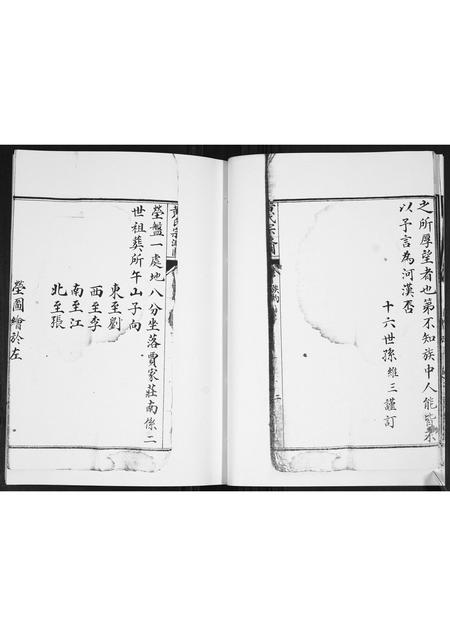 之所厚望者也第不知族中人能皆不
以予言為河漢否
十六世孫維三謹訂
族約
二
黃氏宗譜
塋盤一處地八分坐落賈家莊南係二
世祖葬所午山子向
東至劉
西至李
南至江
北至張
塋圖繪於左